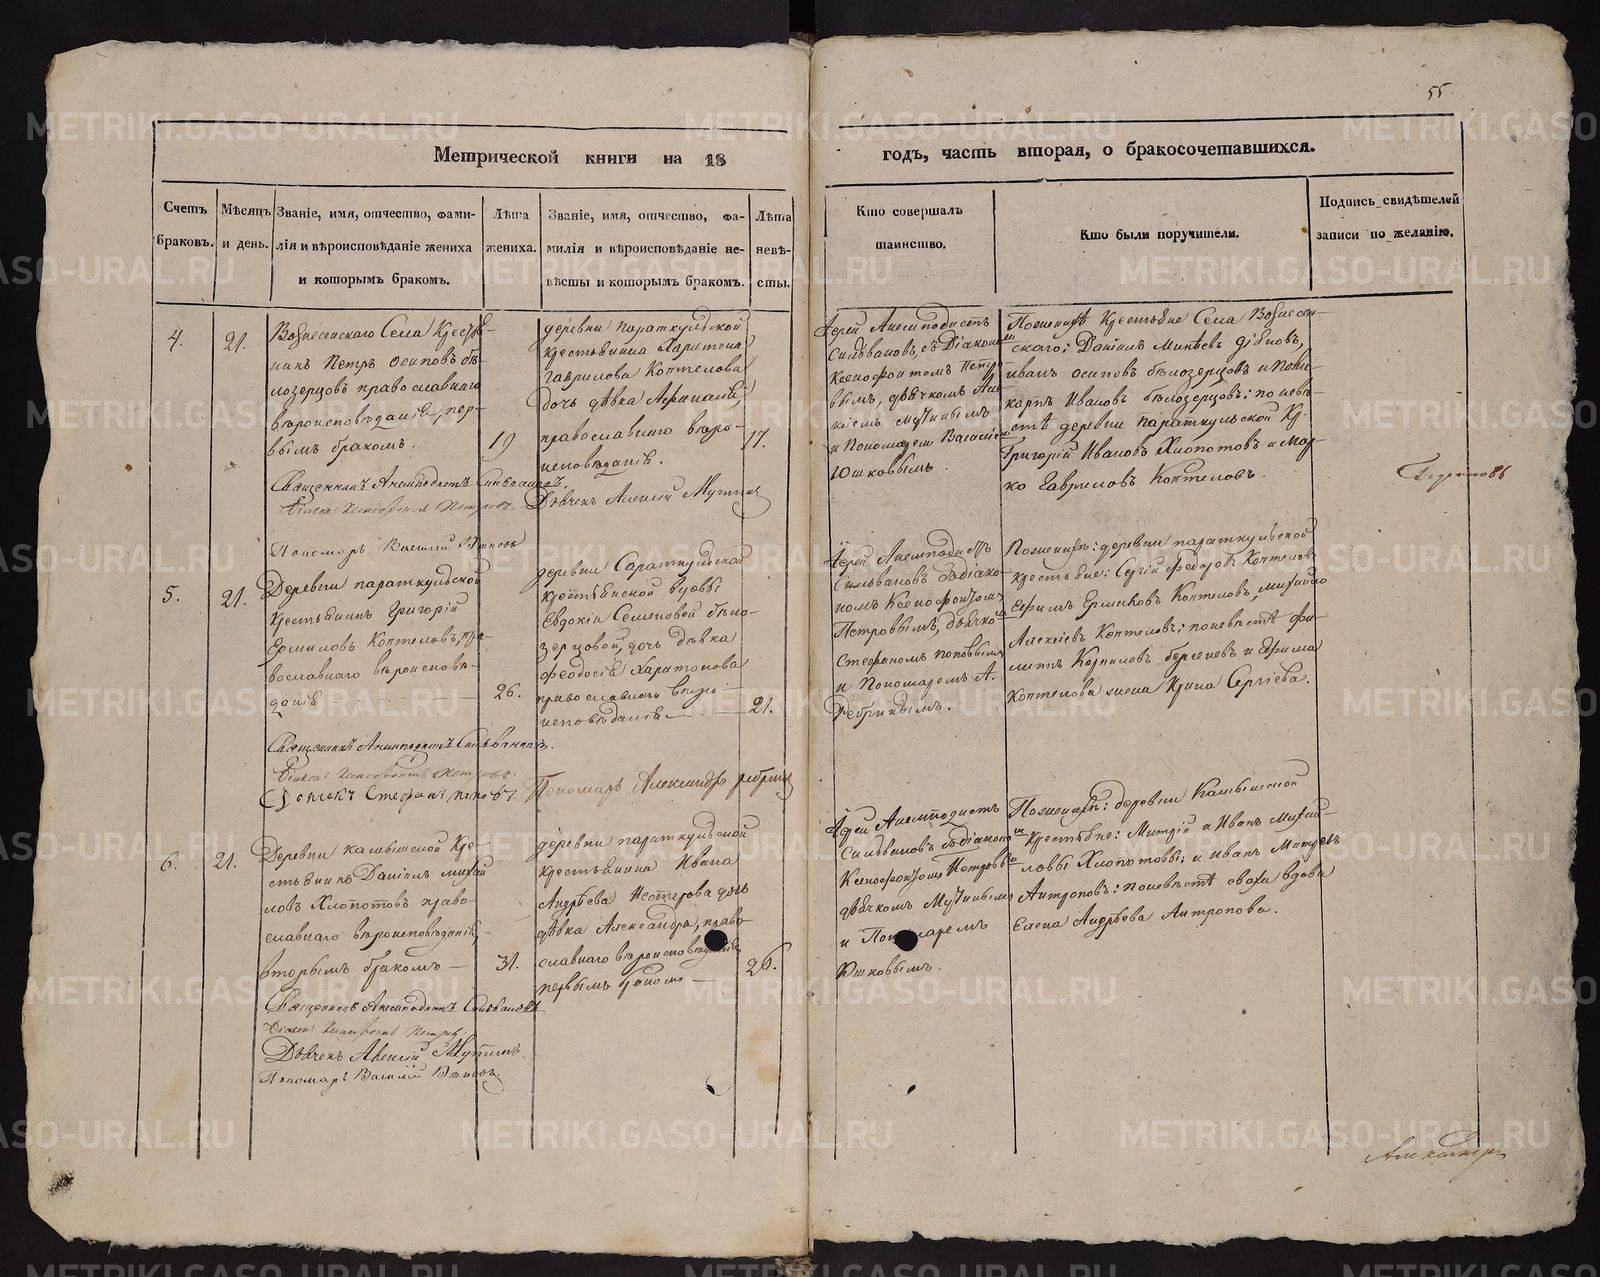 55
Метрической книги на 18
годъ, часть вторая, о бракосочетавшихся.
Счетъ браковъ.
Мѣсяцъ и день.
Званіе, имя, отчество, фами-
лія и вѣроисповѣданіе жениха
и которымъ бракомъ.
Лѣта
жениха.
Званіе, имя, отчество, фа-
милія и вѣроисповѣданіе не-
вѣсты и которымъ бракомъ.
Лѣта
невѣ-
сты.
Кто совершалъ
таинство.
Кто были поручители.
Подпись свидѣтелей
записи по желанію.
4.
21.
Вознесенскаго Села Крестья-
нинъ Петръ Осиповъ бѣ-
лозерцовъ православнаго
вѣроисповѣданія, пер-
вымъ бракомъ.
19
Священникъ Анемподистъ Сильвановъ.
Діаконъ Ксенофонтъ Петровъ.
Пономарь Василій Юшковъ
деревни параткульской
крестьянина Харитона
Гаврилова Коптелова
дочь дѣвка
православнаго вѣро-
исповѣданія.
17.
Дьячекъ Алексій Мутинъ
Іерей Анемподистъ
Сильвановъ, съ Діакономъ
Ксенофонтомъ Петро-
вымъ, дьячкомъ Але-
ксіемъ Мутинымъ
и Пономаремъ Василіемъ
Юшковымъ.
Поженихѣ Крестьяне Села Вознесен-
скаго: Даніилъ
иванъ осиповъ бѣлозерцовъ и Поли-
карпъ Ивановъ бѣлозерцовъ: по невѣ-
стѣ деревни параткульской Кр.
Григорій Ивановъ Хлопотовъ и Мар-
ко Гавриловъ Коптеловъ.
5.
21.
Деревни параткульской
Крестьянинъ Григорій
Ермиловъ Коптеловъ, пра-
вославнаго вѣроисповѣ-
данія
26.
Священникъ Анемподистъ Сильвановъ.
Діаконъ Ксенофонтъ Петровъ.
Дьячекъ Стефанъ поповъ.
деревни Сараткульской
крестьянской вдовы
Евдокіи Семеновой бѣло-
зерцовой, дочь дѣвка
феодосія Харитонова
православнаго вѣро-
исповѣданія
21.
Пономарь Александръ ребринъ
Іерей Анемподистъ
Сильвановъ съ діако-
номъ Ксенофонтомъ
Петровымъ, дьячкомъ
Стефаномъ поповымъ
и Пономаремъ А.
Ребринымъ.
Поженихѣ: деревни параткульской
крестьяне: Сергій Феодоровъ Коптеловъ
Ефимъ Ермиловъ Коптеловъ, михайло
Алексіевъ Коптеловъ: поневѣстѣ фи-
липпъ Корниловъ берсеневъ и Ефима
Коптелова жена Ирина Сергіева.
6.
21.
Деревни камышской Кре-
стьянинъ Даніилъ михай-
ловъ Хлопотовъ право-
славнаго вѣроисповѣданія,
вторымъ бракомъ
31.
Священникъ Анемподистъ Сильвановъ
Діаконъ Ксенофонтъ Петровъ.
Дьячекъ Алексій Мутинъ.
Пономарь Василій Юшковъ.
деревни параткульской
крестьянина Ивана
Андрѣева Нестерова дочь
дѣвка Александра, право-
славнаго вѣроисповѣданія
первымъ бракомъ
26.
Іерей Анемподистъ
Сильвановъ съ діакономъ
Ксенофонтомъ Петровымъ
дьячкомъ Мутинымъ
и Пономаремъ
Юшковымъ.
Поженихѣ: деревни Камышской
Крестьяне: Митрій и Иванъ Михай-
ловы Хлопотовы: и иванъ
Антроповъ: поневѣстѣ сваха вдова
Елена Андрѣева Антропова.